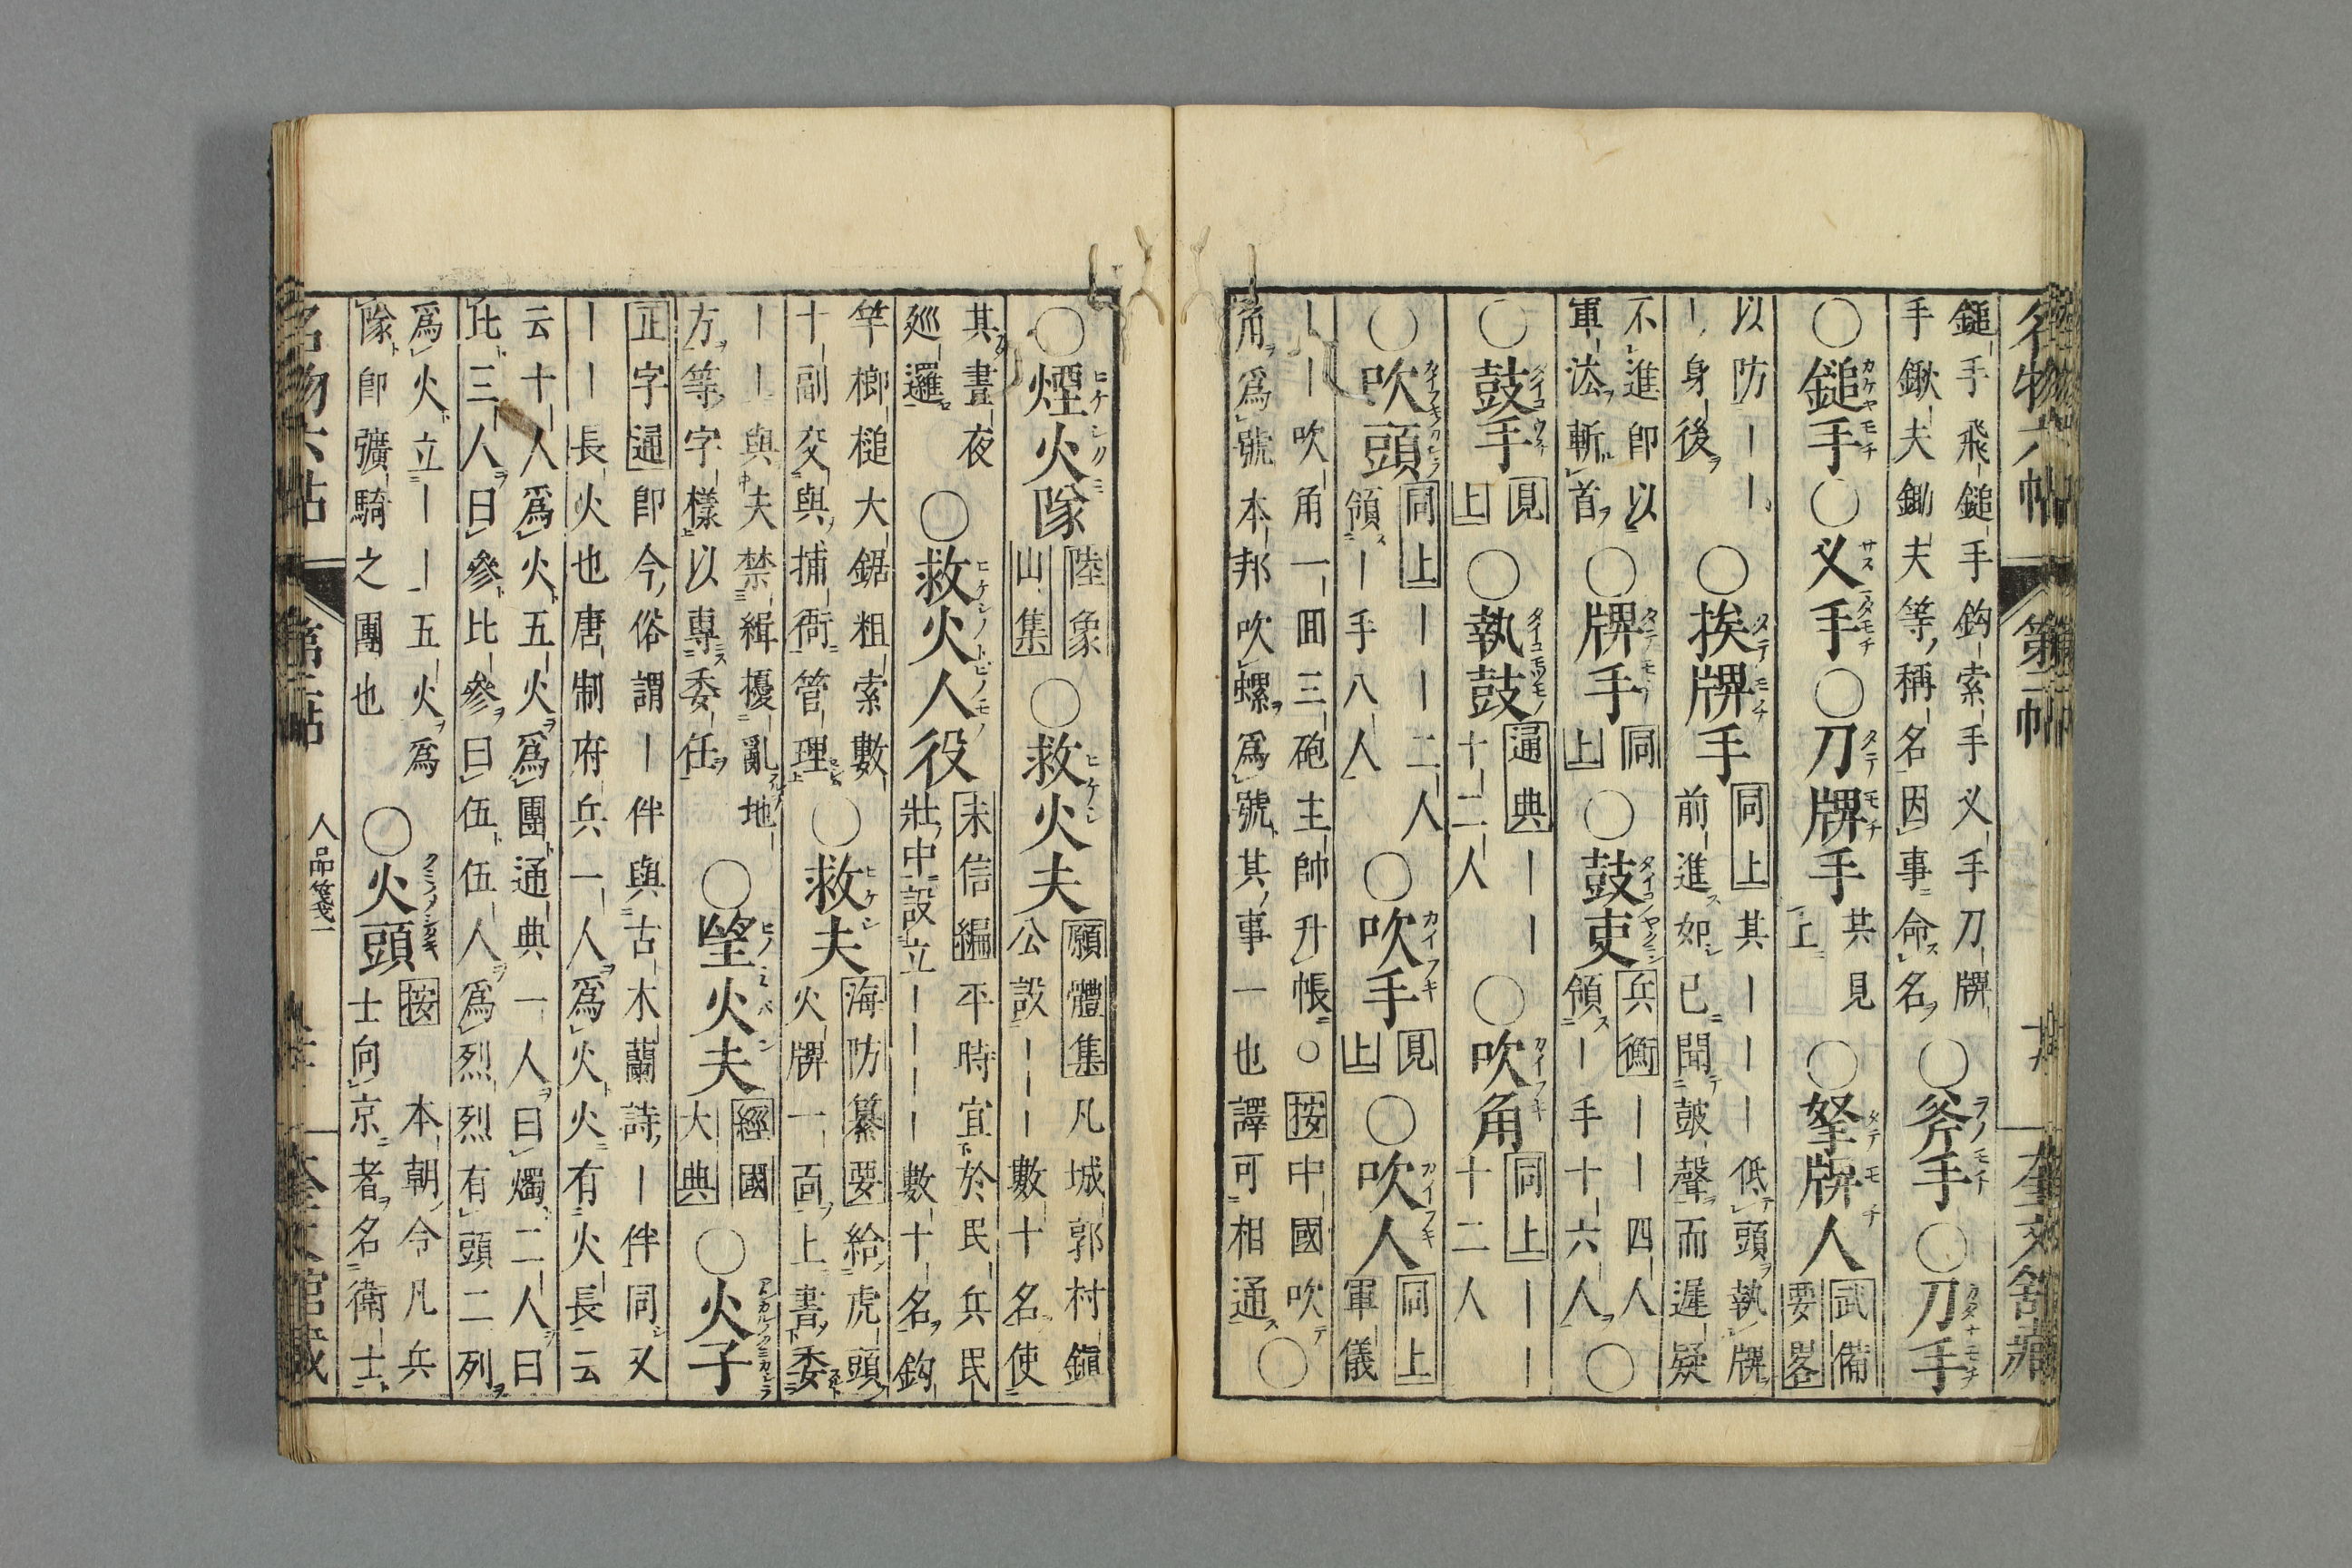 名物六帖 第二帖 奎文舘藏
鎚手飛鎚手鈎索手义手刀牌
手鍬夫鋤夫等稱名因事命名
○斧手○刀手
○鎚手○义手○刀牌手
其見
上
○拏牌人
武備
要畧
以防｜｜
｜身後
○挨牌手
同上其｜｜｜低頭執牌
前進如已聞鼓聲而遲疑
不進即以
軍法斬首
○牌手
同
上
○鼓吏
兵衡｜｜四人
領｜手十六人
○
○鼓手
見
上
○執鼓
通典｜｜
十二人
○吹角
同上｜｜
十二人
○吹頭
同上｜｜二人
領｜手八人
○吹手
見
上
○吹人
同上
軍儀
｜｜吹角一囬三砲主帥升帳○按中國吹
角爲號本邦吹螺爲號其事一也譯可相通
○
○煙火隊
陸象
山集
○救火夫
願體集凡城郭村鎭
公設｜｜｜數十名使
其晝夜
廵邏
○救火人役
未信編平時宜於民兵民
壯中設立｜｜｜｜數十名鈎
竿榔槌大鋸粗索數
十副交與捕衙管理
○救夫
海防纂要給虎頭
火牌一面上書委
｜｜與夫禁緝擾亂地
方等字樣以專委任
○望火夫
經國
大典
○火子
正字通即今俗謂｜伴與古木蘭詩｜伴同又
｜｜長火也唐制府兵一人爲火火有火長云
云十人爲火五火爲團通典一人曰燭二人曰
比三人曰參比參曰伍伍人爲烈烈有頭二列
爲火立｜｜五火爲
隊即彍騎之團也
○火頭
按本朝令凡兵
士向京者名衛士
名物六帖 第二帖 人品箋一 奎文館藏